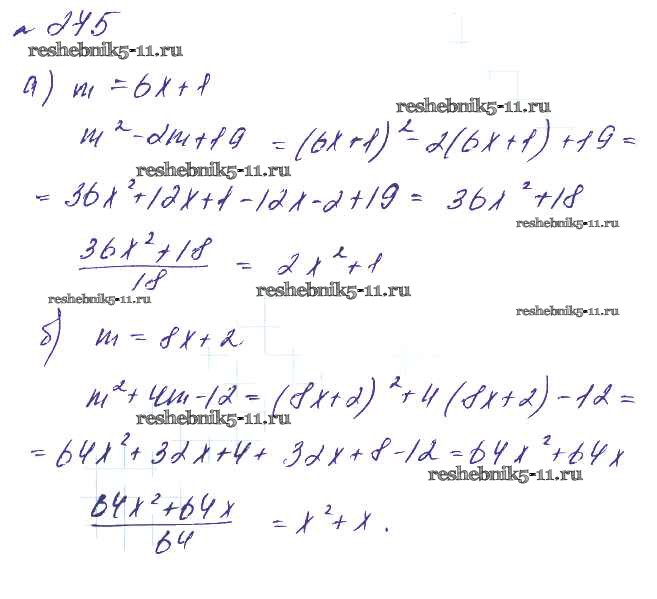 № 275
reshebnik5-11.ru
а) m = 6x+1
reshebnik5-11.ru
m² - 2m+19 = (6x+1)² - 2(6x+1) +19 =
reshebnik5-11.ru
= 36x²+12x+1-12x-2+19 = 36x²+18
reshebnik5-11.ru
(36x²+18)/18 = 2x²+1
reshebnik5-11.ru
reshebnik5-11.ru
reshebnik5-11.ru
б) m = 8x+2
m²+4m-12 = (8x+2)²+4(8x+2)-12 =
reshebnik5-11.ru
= 64x²+32x+4+32x+8-12 = 64x²+64x
reshebnik5-11.ru
(64x²+64x)/64 = x²+x.